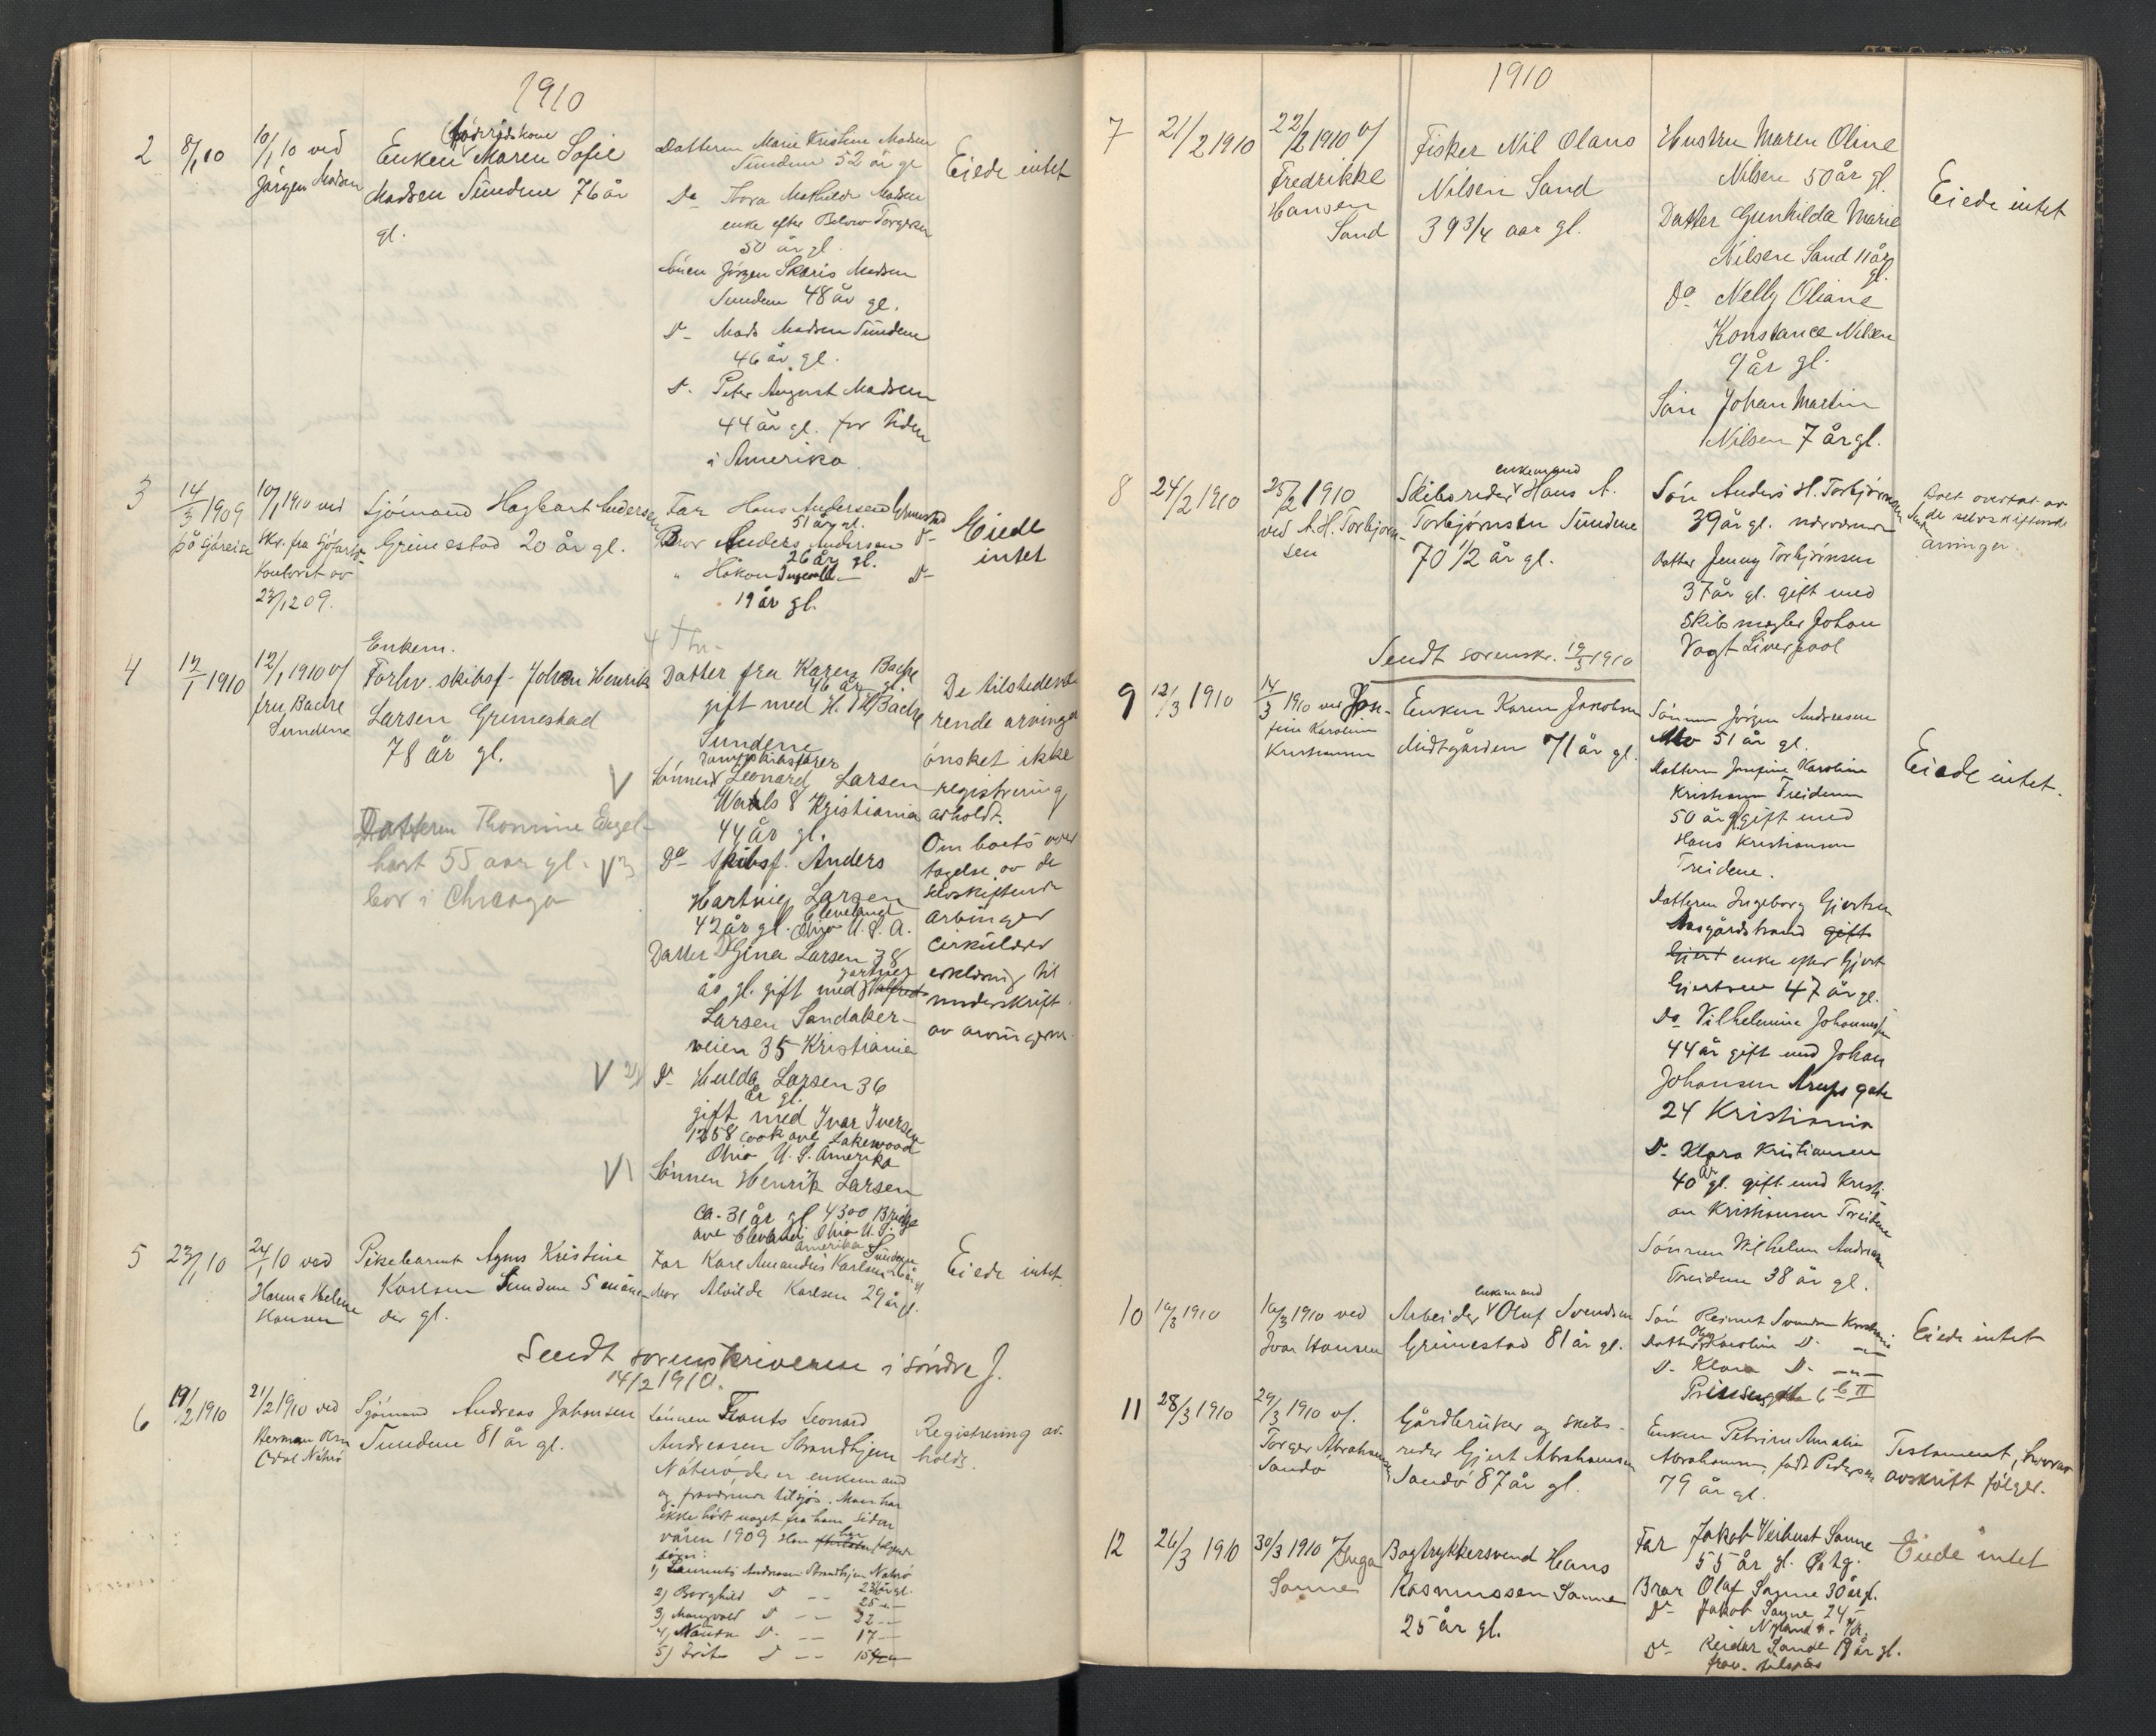 1910
2
8/1 10
10/1 10 ved
Jørgen Madsen
Enken Maren Sofie
Madsen Sundene 76 år
gl.
Datteren Marie Kristine Madsen
Sundene 52 år gl
Do Mathilde Madsen
enke efter
50 år gl.
Sønen Jørgen Skaris Madsen
Sundene 48 år gl.
D- Mads Madsen Sundene
46 år gl.
D- Peter August Madsen
44 år gl. for tiden
i Amerika
Eiede intet
3
14/3 1909
på sjøreise
10/1 1910 ved
skr. fra Sjøfarts
Kontoret av
23/12 09.
Sjømand Hagbart Andersen
Grimestad 20 år gl.
Far Hans Andersen Grimestad
51 år gl.
Bror Anders Andersen D-
26 år gl.
" Håkon D-
19 år gl.
Eiede
intet
4
12/1 1910
12/1 1910 v/
fru Bache
Sundene
Enkem.
Forhv. skibsf. Johan Henrik
Larsen Grimestad
78 år gl.
Datteren Thomine Engel-
hart 55 aar gl.
bor i Chicago
Datter fru Karen Bache
46 år gl.
gift med H. Th Bache
Sundene
Sønnen Leonard Larsen
8 Kristiania
44 år gl.
Do skibsf. Anders
Hartvig Larsen
Cleveland
42 år gl. Ohio U.S.A.
Datter Gina Larsen 38
gartner
år gl. gift med
Larsen Sandaker-
veien 35 Kristiania
D- Hulda Larsen 36
år gl.
gift med Ivar Iversen
1258 Cook ave Lakewood
Ohio U.S. Amerika
Sønnen Henrik Larsen
ca. 31 år gl 4300 Bridge
ave Cleveland Ohio U.S.
Amerika
De tilstedevæ
rende arvinger
ønsket ikke
registrering
avholdt.
Om boets over
tagelse av de
selvskiftende
arvinger
cirkulerer
erklæring til
underskrift
av arvingerne
5
23/1 10
24/1 10 ved
Hanna Helene
Hansen
Pikebarnet Agnes Kristine
Karlsen Sundene 5 måne-
der gl.
Far Karl Amandus Karlsen Sundene
Mor Alvilde Karlsen 29 år gl.
Eiede intet.
Sendt sorenskriveren i søndre J.
14/2 1910.
6
19/2 1910
21/2 1910 ved
Herman
Nøtterø
Sjømand Andreas Johansen
Sundene 81 år gl.
Sønnen Leonard
Andreasen Strandhjem
Nøtterø, der er enkemand
og fraværende tilsjøs. Man har
ikke hørt noget fra ham siden
våren 1909. Han har følgende
børn:
1) Laurentz Andreasen Strandhjem Nøtterø
2) Borghild D — 25 —
3) Mangvald D — 22 —
4) D- — 17 —
5) D —
Registrering av-
holdt.
1910
7
21/2 1910
22/2 1910 v/
Fredrikke
Hansen
Sand
Fisker Nil Olaus
Nilsen Sand
39 3/4 aar gl.
Hustru Maren Oline
Nilsen 50 år gl.
Datter Gunhilda Marie
Nilsen Sand 11 år
gl.
Do Nelly Oliane
Konstance Nilsen
9 år gl.
Søn Johan Martin
Nilsen 7 år gl.
Eiede intet
8
24/2 1910
25/2 1910
ved A. H. Torbjørn-
sen
enkemand
Skibsreder Hans A.
Torbjørnsen Sundene
70 1/2 år gl.
Søn Anders H. Torbjørnsen
39 år gl. nærværende
Datter Jenny Torbjørnsen
37 år gl. gift med
Skibsmægler Johan
Vogt Liverpool
Boet overtat av
de selvskiftende
arvinger.
Sendt sorenskr. 12/3 1910
9
12/3 1910
14/3 1910 ved Jose-
fine Karoline
Kristiansen
Enken Karen Jakobsen
Midtgården 71 år gl.
Sønnen Jørgen Andreasen
51 år gl.
Datteren Josefine Karoline
Kristiansen Treidene
50 år gl gift med
Hans Kristiansen
Treidene.
Datteren Ingeborg Gjertsen
Aasgårdstrand gift
Gjert enke efter Gjert
Gjertsen 47 år gl.
Do Vilhelmine Johannessen
44 år gift med Johan
Johansen Arups gate
24 Kristiania
D- Klara Kristiansen
40 år gl. gift med Kristi-
an Kristiansen Treidene
Sønnen Vilhelm Andreasen
Treidene 38 år gl.
Eiede intet.
10
16/3 1910
16/3 1910 ved
Ivar Hansen
enkemand
Arbeider Oluf Svendsen
Grimestad 81 år gl.
Søn Reinert Svendsen Kristiania
Datter Karoline D- —"—
D- Klara D- —"—
Prinsensgate 6 b II
Eiede intet
11
28/3 1910
29/3 1910 v/.
Torger Abrahamsen
Sandø
Gårdbruker og skibs-
reder Gjert Abrahamsen
Sandø 87 år gl.
Enken Petrine Amalie
Abrahamsen, født Pedersen
79 år gl.
Testament, hvorav
avskrift følger.
12
26/3 1910
30/3 1910 Inga
Sanne
Bogtrykkersvend Hans
Rasmussen Sanne
25 år gl.
Far Jakob Sanne
55 år gl.
Bror Olaf Sanne 30 år gl.
D- Jakob Sanne 24 -
D- Reidar Sanne 19 år gl.
frav. tilsjøs
Eiede intet